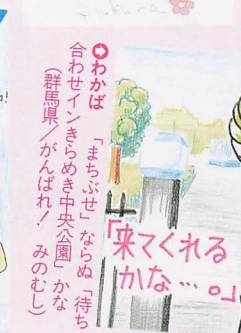 Sakura
➲わかば 「まちぶせ」ならぬ「待ち
合わせインきらめき中央公園」かな
(群馬県/がんばれ! みのむし)
「来てくれる
かな…。」